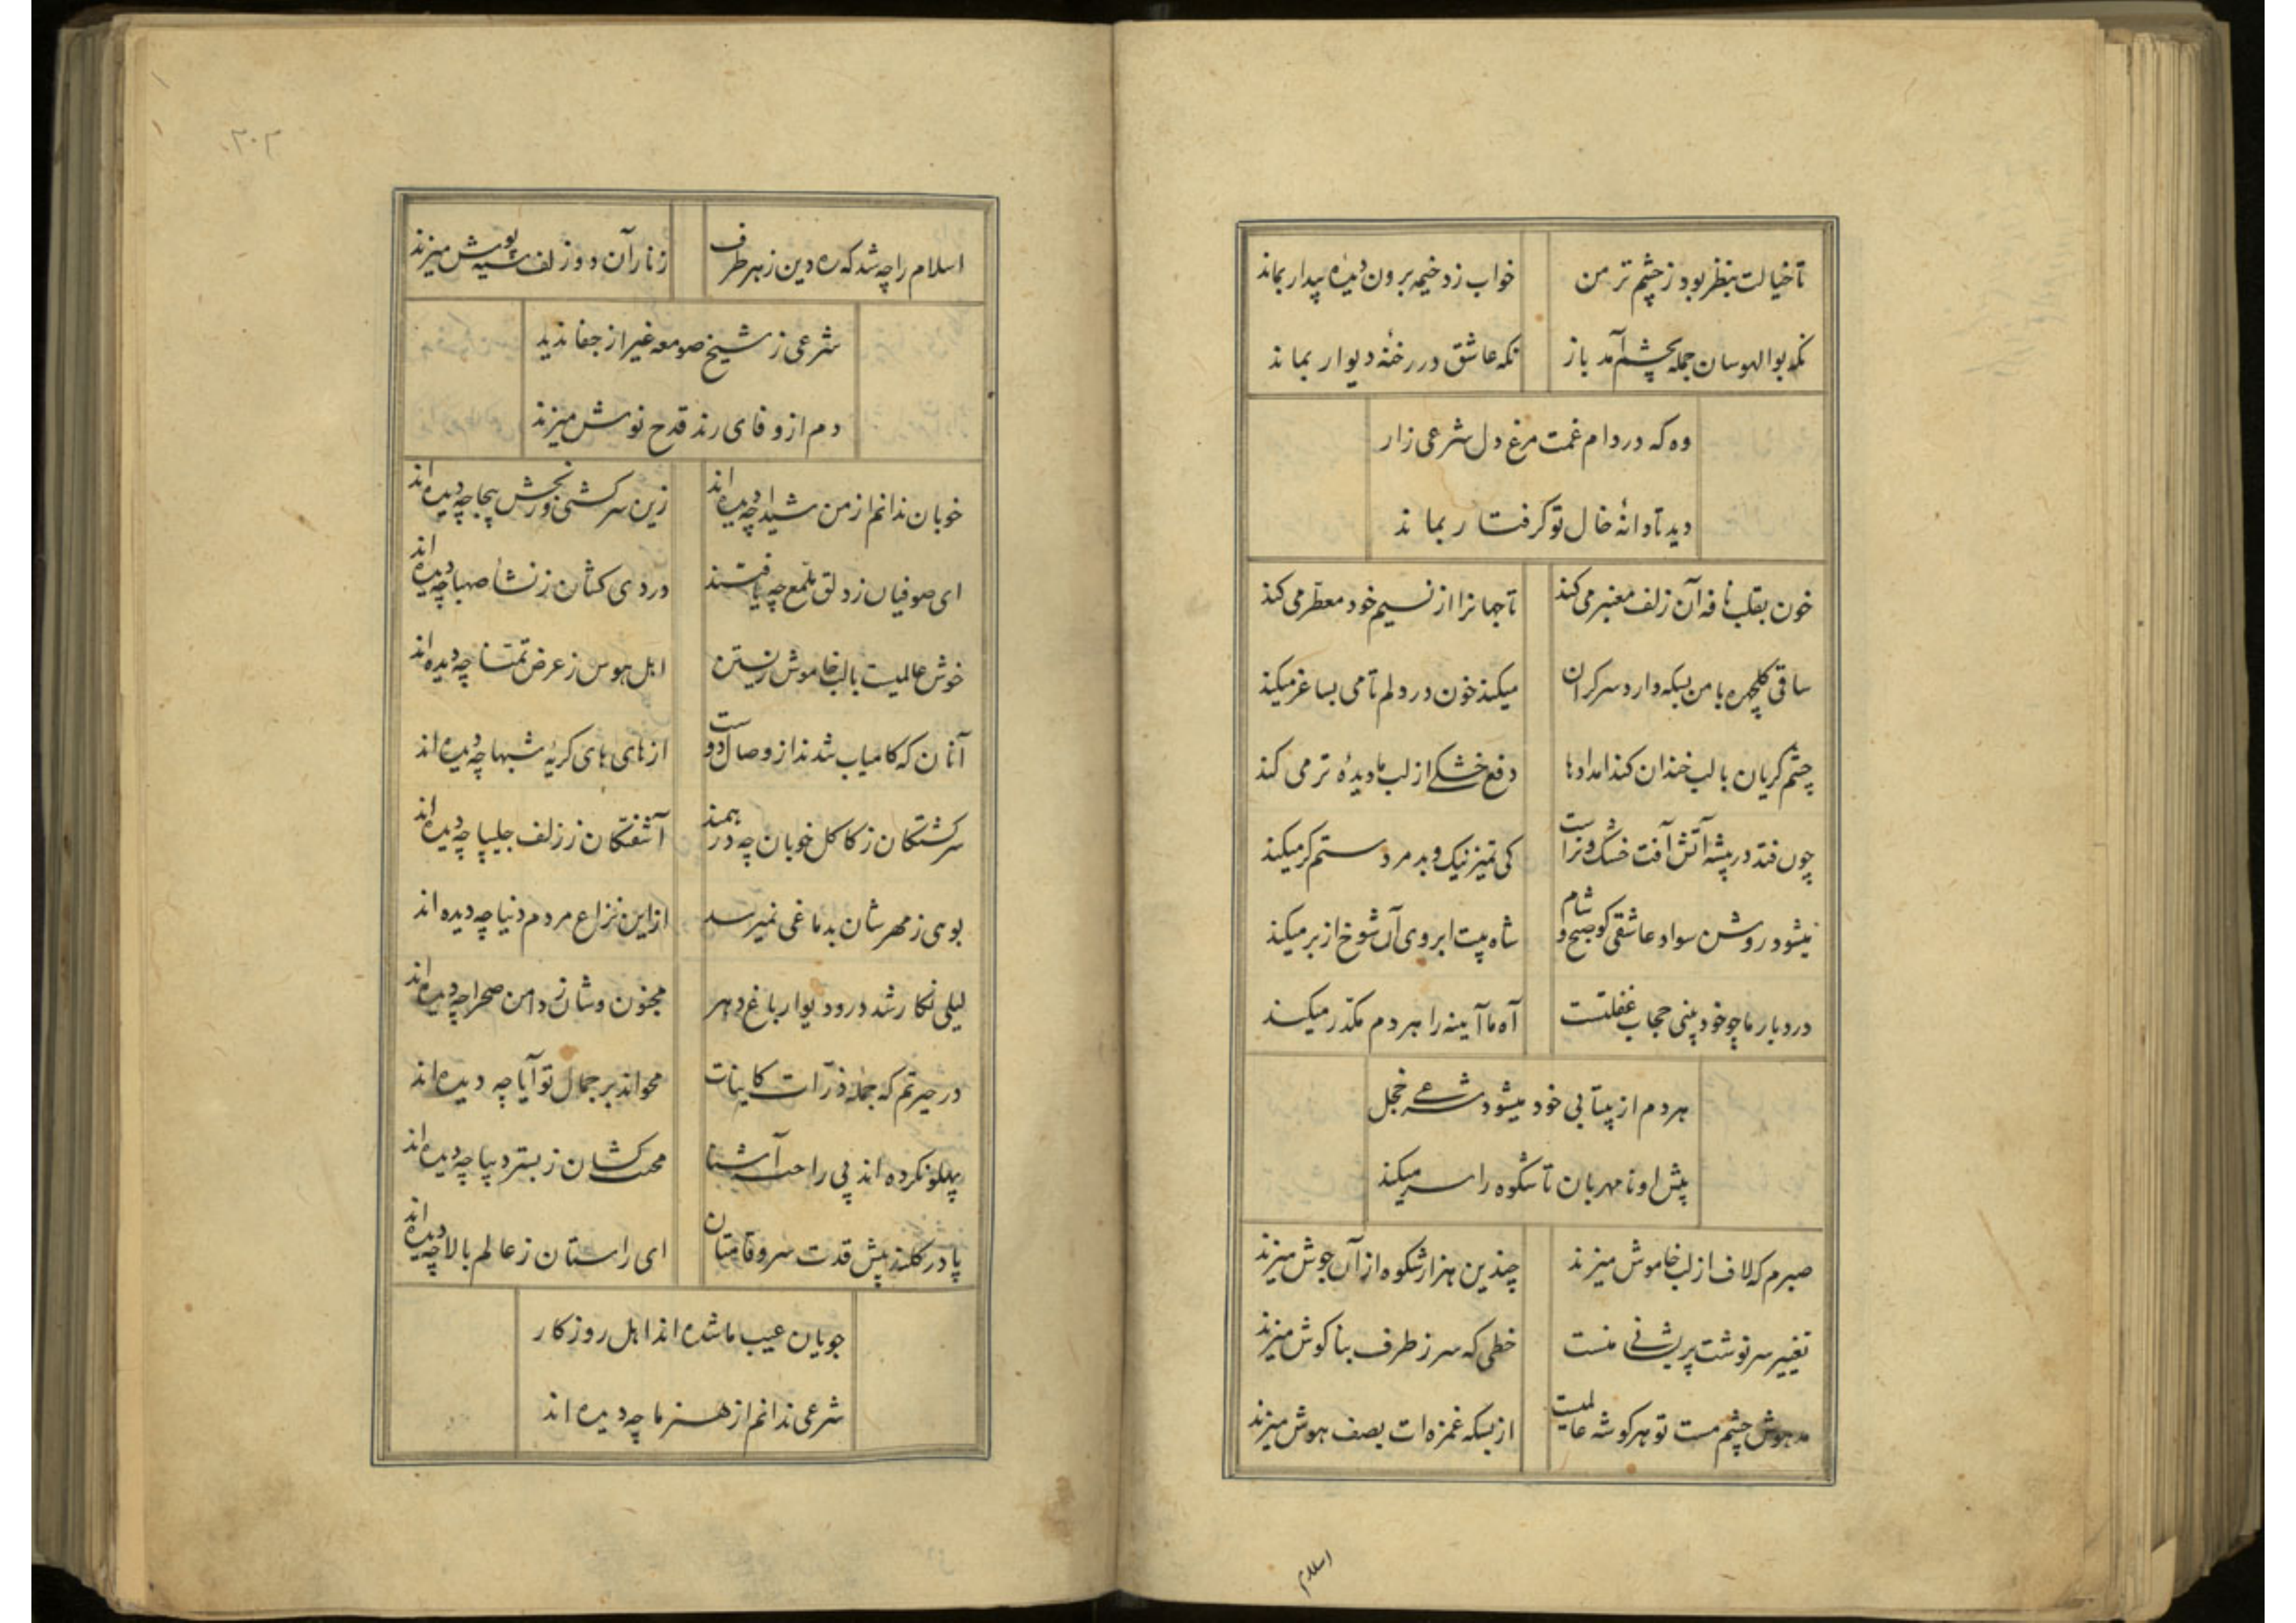 تا خیالت بنظر بود ز چشم تر من
خواب زد خیمه برون دیده بیدار بماند
نکه بوالهوسان جمله بچشم آمد باز
نکه عاشق در رخنهٔ دیوار بماند
وه که در دام غمت مرغ دل شرعی زار
دید تا دانهٔ خال تو کرفتار بماند
خون بقلب نافه آن زلف معنبر می کند
تا جهانرا از نسیم خود معطر می کند
ساقی کلچهره با من بسکه دارد سرکران
میکند خون در دلم تا می بساغر میکند
چشم کریان با لب خندان کند امدادها
دفع خشکی از لب ما دیدهٔ تر می کند
چون فتد در بیشه آتش آفت خشک و تر است
کی تمیز نیک و بد مرد ستم کر میکند
میشود روشن سواد عاشقی کو صبح و شام
شاه بیت ابروی آن شوخ از بر میکند
در دیار ما چو خود بینی حجاب غفلتست
آه ما آیینه را هر دم مکدر میکند
هر دم از بیتابی خود میشود شرعی خجل
پیش او نامهربان تا شکوه را سر میکند
صبرم که لاف از لب خاموش میزند
چندین هزار شکوه از آن جوش میزند
تغییر سرنوشت پریشانی منست
خطی که سر ز طرف بناکوش میزند
مدهوش چشم مست تو هر کوشه عالمیست
از بسکه غمزه ات بصف هوش میزند
اسلام
۳۰۲
اسلام را چه شد که ره دین ز هر طرف
زنار آن دو زلف سیه پوش میزند
شرعی ز شیخ صومعه غیر از جفا ندید
دم از وفای رند قدح نوش میزند
خوبان ندانم از من شیدا چه دیده اند
زین سرکشی و رنجش بیجا چه دیده اند
ای صوفیان ز دلق ملمع چه یافتند
دردی کشان ز نشأ صهبا چه دیده اند
خوش عالمیست با لب خاموش زیستن
اهل هوس ز عرض تمنا چه دیده اند
آنان که کامیاب شدند از وصال دوست
از های های کریهٔ شبها چه دیده اند
سرکشتکان ز کاکل خوبان چه در همند
آشفتکان ز زلف چلیپا چه دیده اند
بوی ز مهرشان بدماغی نمیرسد
از این نزاع مردم دنیا چه دیده اند
لیلی نکار شد در و دیوار باغ دهر
مجنون وشان ز دامن صحرا چه دیده اند
در حیرتم که جمله ذرات کاینات
محواند بر جمال تو آیا چه دیده اند
پهلو نکرده اند پی راحت آشنا
محنت کشان ز بستر دیبا چه دیده اند
پا در کلند پیش قدت سرو قامتان
ای راستان ز عالم بالا چه دیده اند
جویان عیب ما شده اند اهل روزکار
شرعی ندانم از هنر ما چه دیده اند